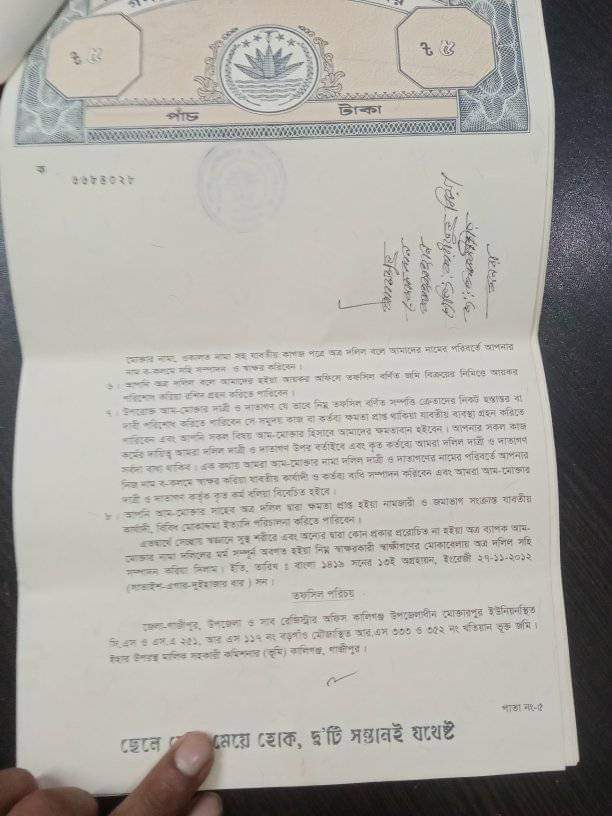 ৳ ৫
৳ ৫
পাঁচ টাকা
ক
৬৬৮৪০২৮
মোক্তার নামা, ওকালত নামা সহ যাবতীয় কাগজ পত্রে অত্র দলিল বলে আমাদের নামের পরিবর্তে আপনার
নাম ব-কলমে সহি সম্পাদন ও স্বাক্ষর করিবেন।
৬। আপনি অত্র দলিল বলে আমাদের হইয়া আয়কর অফিসে তফসিল বর্ণিত জমি বিক্রয়ের নিমিত্তে আয়কর
পরিশোধ করিয়া রশিদ গ্রহন করিতে পারিবেন।
৭। উপরোক্ত আম-মোক্তার দাত্রী ও দাতাগণ যে ভাবে নিম্ন তফসিল বর্ণিত সম্পত্তি ক্রেতাদের নিকট হস্তান্তর বা
দাবী পরিশোধ করিতে পারিবেন সে সমুদয় কাজ বা কর্তব্য ক্ষমতা প্রাপ্ত থাকিয়া যাবতীয় ব্যবস্থা গ্রহন করিতে
পারিবেন এবং আপনি সকল বিষয় আম-মোক্তার হিসাবে আমাদের ক্ষমতাবান হইবেন। আপনার সকল কাজ
কর্মের দায়িত্ব আমরা দলিল দাত্রী ও দাতাগণ উপর বর্তাইবে এবং কৃত কর্তব্যে আমরা দলিল দাত্রী ও দাতাগণ
সর্বদা বাধ্য থাকিব। এত কথায় আমরা আম-মোক্তার নামা দলিল দাত্রী ও দাতাগণের নামের পরিবর্তে আপনার
নিজ নাম ব-কলমে স্বাক্ষর করিয়া যাবতীয় কার্যাদী ও কর্তব্য বাধি সম্পাদন করিবেন এবং আমরা আম-মোক্তার
দাত্রী ও দাতাগণ কর্তৃক কৃত কর্ম বলিয়া বিবেচিত হইবে।
৮। আপনি আম-মোক্তার সাহেব অত্র দলিল দ্বারা ক্ষমতা প্রাপ্ত হইয়া নামজারী ও জমাভাগ সংক্রান্ত যাবতীয়
কার্যাদী, বিবিধ মোকাদ্দমা ইত্যাদি পরিচালনা করিতে পারিবেন।
এতদ্বার্থে স্বেচ্ছায় স্বজ্ঞানে সুস্থ শরীরে এবং অন্যের দ্বারা কোন প্রকার প্ররোচিত না হইয়া অত্র ব্যাপক আম-
মোক্তার নামা দলিলের মর্ম সম্পূর্ন অবগত হইয়া নিম্ন স্বাক্ষরকারী স্বাক্ষীগণের মোকাবেলায় অত্র দলিল সহি
সম্পাদন করিয়া দিলাম। ইতি, তারিখ : বাংলা ১৪১৯ সনের ১৩ই অগ্রহায়ন, ইংরেজী ২৭-১১-২০১২
(সাতাইশ-এগার-দুইহাজার বার) সন।
তফসিল পরিচয়
জেলা-গাজীপুর, উপজেলা ও সাব রেজিস্ট্রার অফিস কালিগঞ্জ উপজেলাধীন মোক্তারপুর ইউনিয়নস্থিত
সি,এস ও এস.এ ২৫১, আর এস ১১৭ নং বড়গাঁও মৌজাস্থিত আর,এস ৩৩৩ ও ৩৫২ নং খতিয়ান ভূক্ত জমি।
ইহার উপরস্থ মালিক সহকারী কমিশনার (ভূমি) কালিগঞ্জ, গাজীপুর।
পাতা নং-৫
ছেলে মেয়ে হোক, দু'টি সন্তানই যথেষ্ট